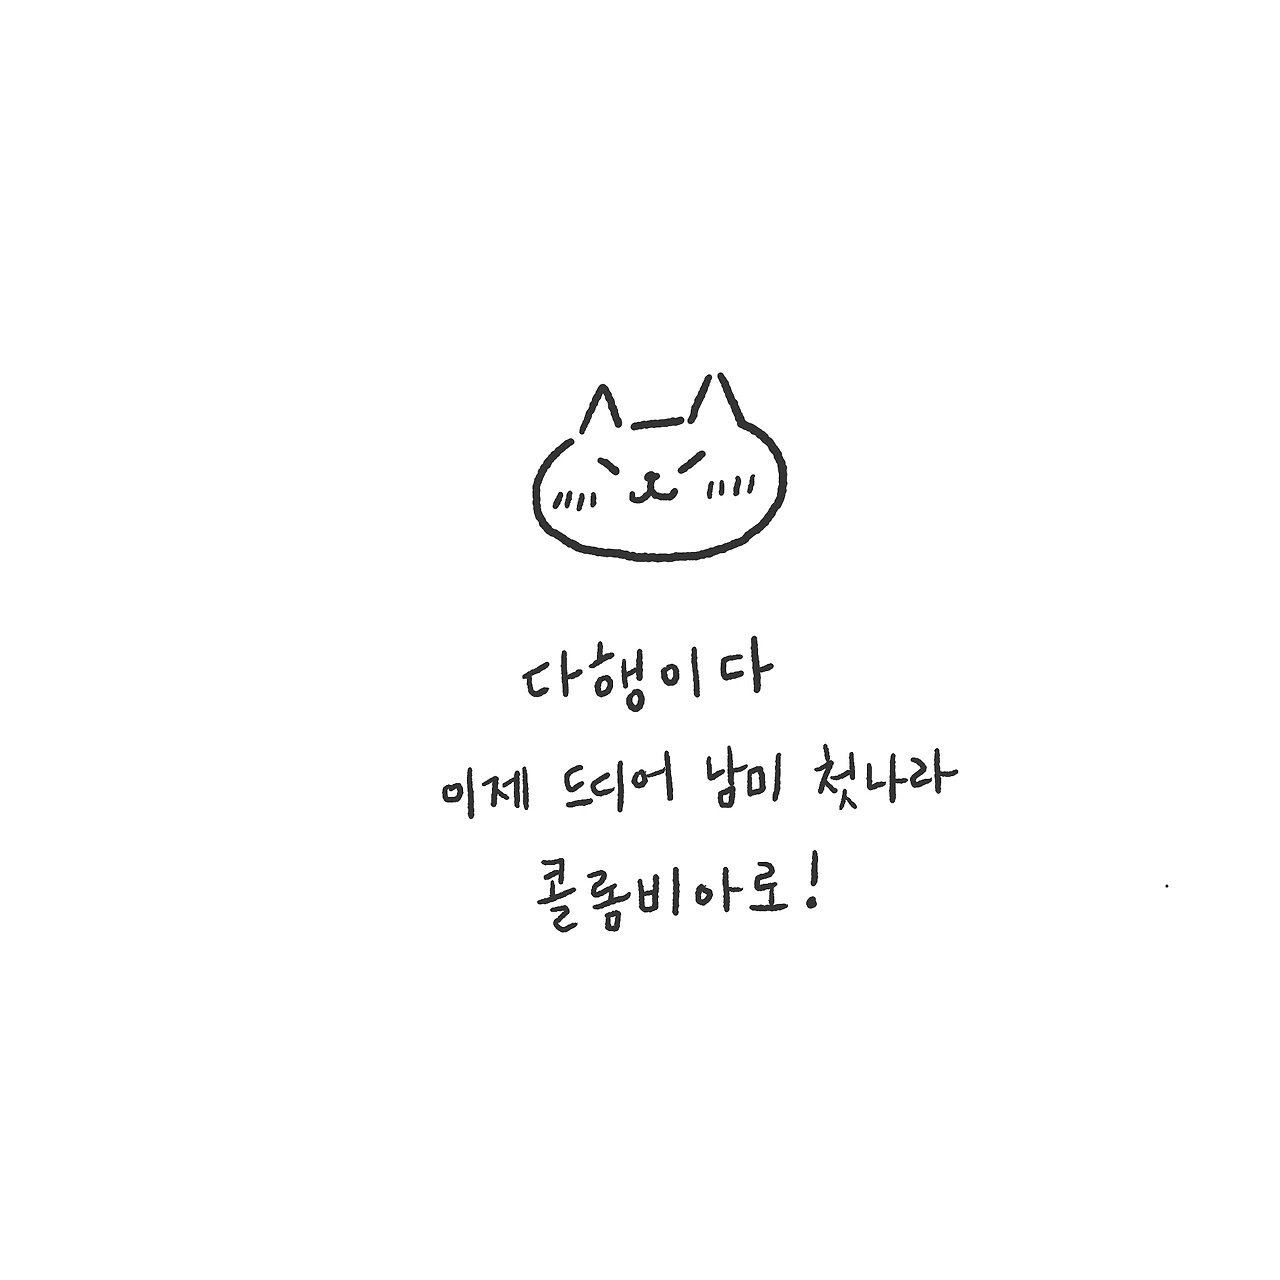 다행이다
이제 드디어 남미 첫나라
콜롬비아로!